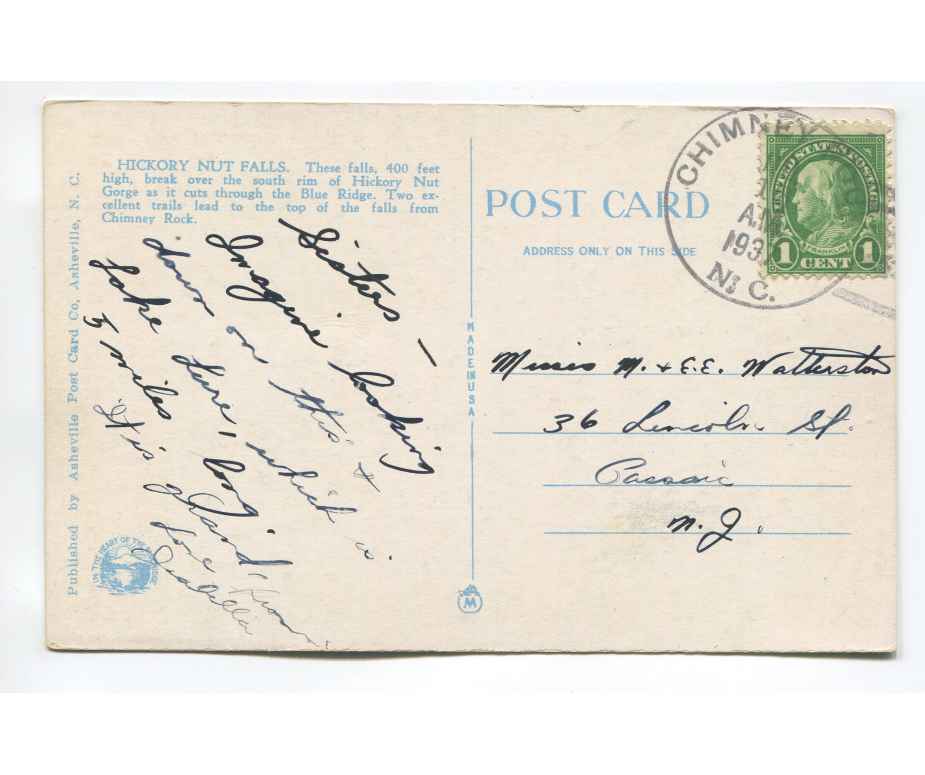 HICKORY NUT FALLS. These falls, 400 feet
high, break over the south rim of Hickory Nut
Gorge as it cuts through the Blue Ridge. Two ex-
cellent trails lead to the top of the falls from
Chimney Rock.
Sisters —
Imagine looking
down on this &
Lake Lure, which is
5 miles long.
It is grand,
love from
Published by Asheville Post Card Co, Asheville, N. C.
IN THE HEART OF THE
MADE IN USA
M
POST CARD
ADDRESS ONLY ON THIS SIDE
CHIMNEY
A.M.
193
N. C.
UNITED STATES POSTAGE
FRANKLIN
1 CENT 1
Misses M. & E.E. Watterston
36 Lincoln St.
Passaic
N. J.